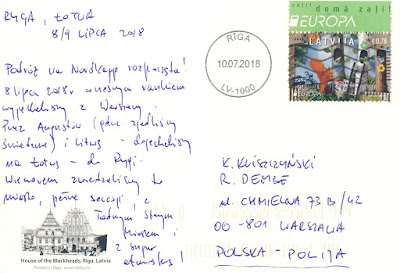 RYGA, ŁOTWA
8/9 LIPCA 2018
Podróż na Nordkapp rozpoczęta!
8 lipca 2018r. wczesnym rankiem
wyjechaliśmy z Warszawy.
Przez Augustów (gdzie zjedliśmy
śniadanie) i Litwę - dojechaliśmy
na Łotwę - do Rygi.
Wieczorem zwiedzaliśmy to
miasto, pełne secesji, z
ładnym starym
miastem i
z super
atmosferą!
House of the Blackheads. Riga, Latvia
RĪGA
10.07.2018
LV-1000
domā zaļi!
EUROPA
LATVIJA
€0.78
K. KLISZCZYŃSKI
R. DEMBE
ul. CHMIELNA 73 B /42
00-801 WARSZAWA
POLSKA - POLIJA